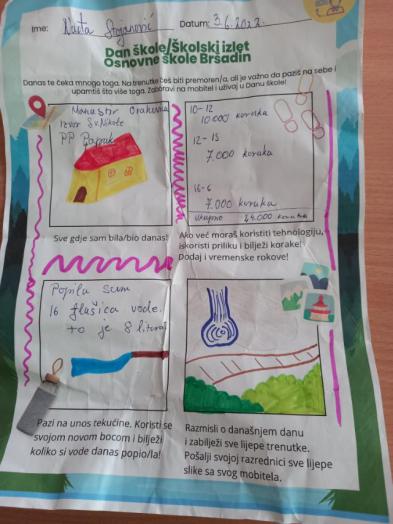 Ime: Nata Stojanović Datum: 3.6.2022.
Dan škole/Školski izlet
Osnovne škole Bršadin
Danas te čeka mnogo toga. Na trenutke ćeš biti premoren/a, ali je važno da paziš na sebe i
upamtiš što više toga. Zaboravi na mobitel i uživaj u Danu škole!
Manastir Orahovica
Izvor Sv. Nikole
PP Papuk
Sve gdje sam bila/bio danas!
10-12
10.000 koraka
12-15
7.000 koraka
16-6
7.000 koraka
ukupno 24.000 koraka
Ako već moraš koristiti tehnologiju,
iskoristi priliku i bilježi korake!
Dodaj i vremenske rokove!
Popila sam
16 flašica vode.
to je 8 litara
Pazi na unos tekućine. Koristi se
svojom novom bocom i bilježi
koliko si vode danas popio/la!
Razmisli o današnjem danu
i zabilježi sve lijepe trenutke.
Pošalji svojoj razrednici sve lijepe
slike sa svog mobitela.